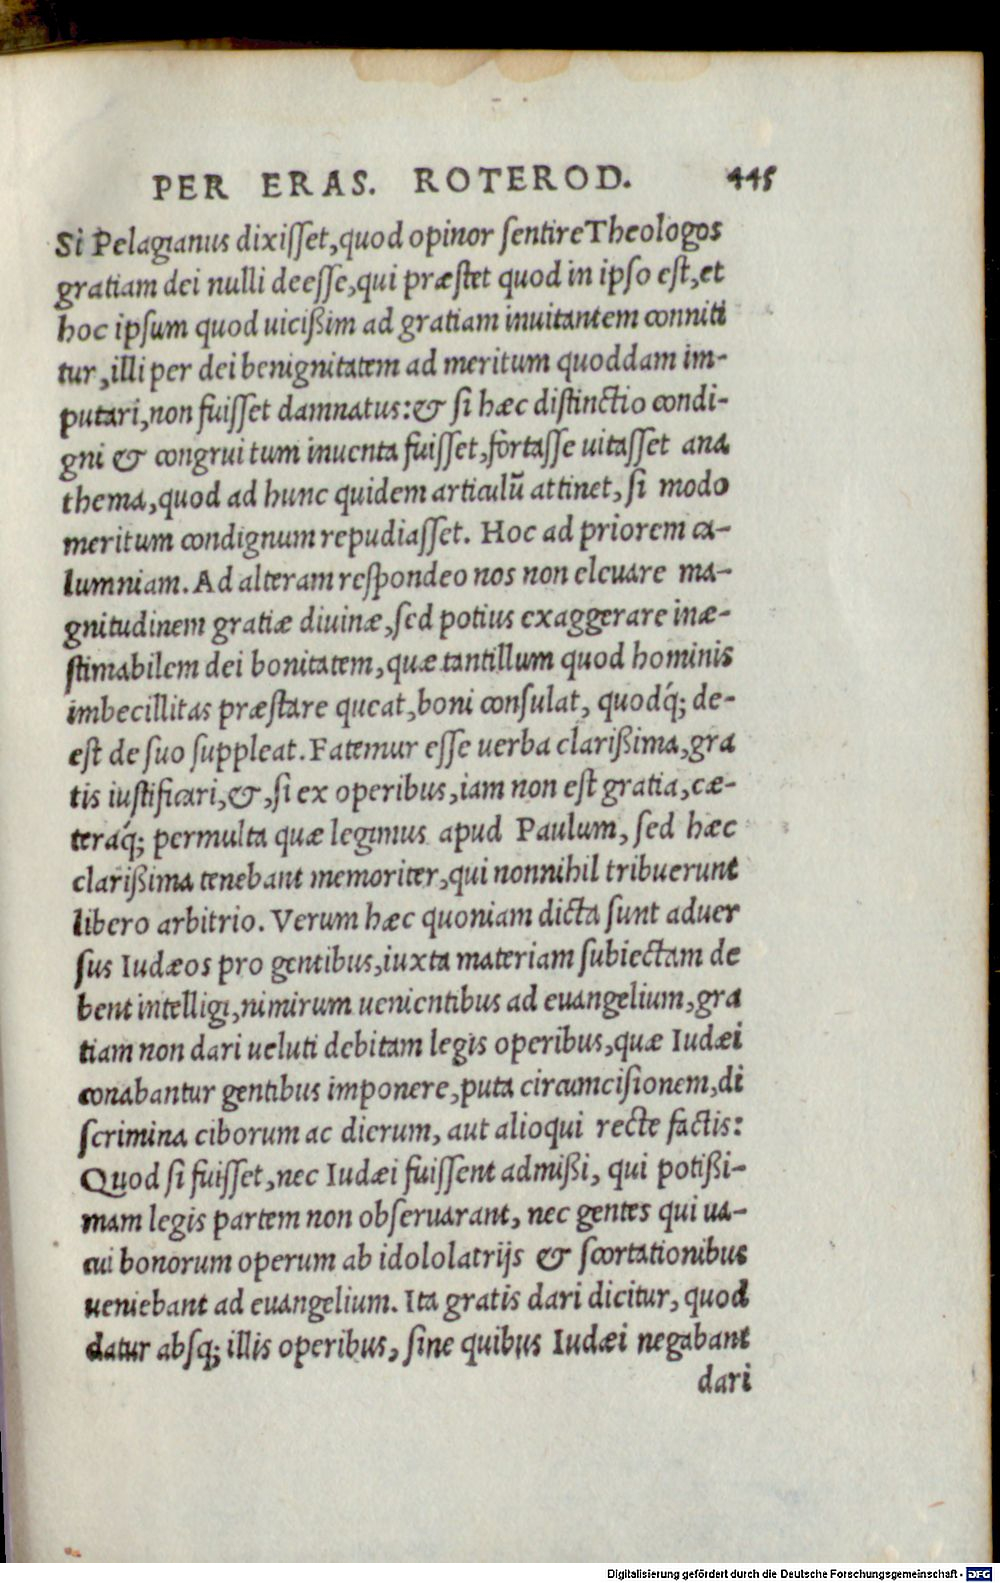 PER ERAS. ROTEROD. 445
Si Pelagianus dixiſſet, quod opinor ſentire Theologos
gratiam dei nulli deeſſe, qui præſtet quod in ipſo eſt, et
hoc ipſum quod uicißim ad gratiam inuitantem conniti
tur, illi per dei benignitatem ad meritum quoddam im-
putari, non fuiſſet damnatus: & ſi hæc diſtinctio condi-
gni & congrui tum inuenta fuiſſet, fortaſſe uitaſſet ana
thema, quod ad hunc quidem articulũ attinet, ſi modo
meritum condignum repudiaſſet. Hoc ad priorem ca-
lumniam. Ad alteram reſpondeo nos non eleuare ma-
gnitudinem gratiæ diuinæ, ſed potius exaggerare inæ-
ſtimabilem dei bonitatem, quæ tantillum quod hominis
imbecillitas præſtare queat, boni conſulat, quodq́; de-
eſt de ſuo ſuppleat. Fatemur eſſe uerba clarißima, gra
tis iuſtificari, &, ſi ex operibus, iam non eſt gratia, cæ-
teraq́; permulta quæ legimus apud Paulum, ſed hæc
clarißima tenebant memoriter, qui nonnihil tribuerunt
libero arbitrio. Verum hæc quoniam dicta ſunt aduer
ſus Iudæos pro gentibus, iuxta materiam ſubiectam de
bent intelligi, nimirum uenientibus ad euangelium, gra
tiam non dari ueluti debitam legis operibus, quæ Iudæi
conabantur gentibus imponere, puta circumciſionem, di
ſcrimina ciborum ac dierum, aut alioqui recte factis:
Quod ſi fuiſſet, nec Iudæi fuiſſent admißi, qui potißi-
mam legis partem non obſeruarant, nec gentes qui ua-
cui bonorum operum ab idololatrijs & ſcortationibus
ueniebant ad euangelium. Ita gratis dari dicitur, quod
datur abſq; illis operibus, ſine quibus Iudæi negabant
dari
Digitalisierung gefördert durch die Deutsche Forschungsgemeinschaft - DFG